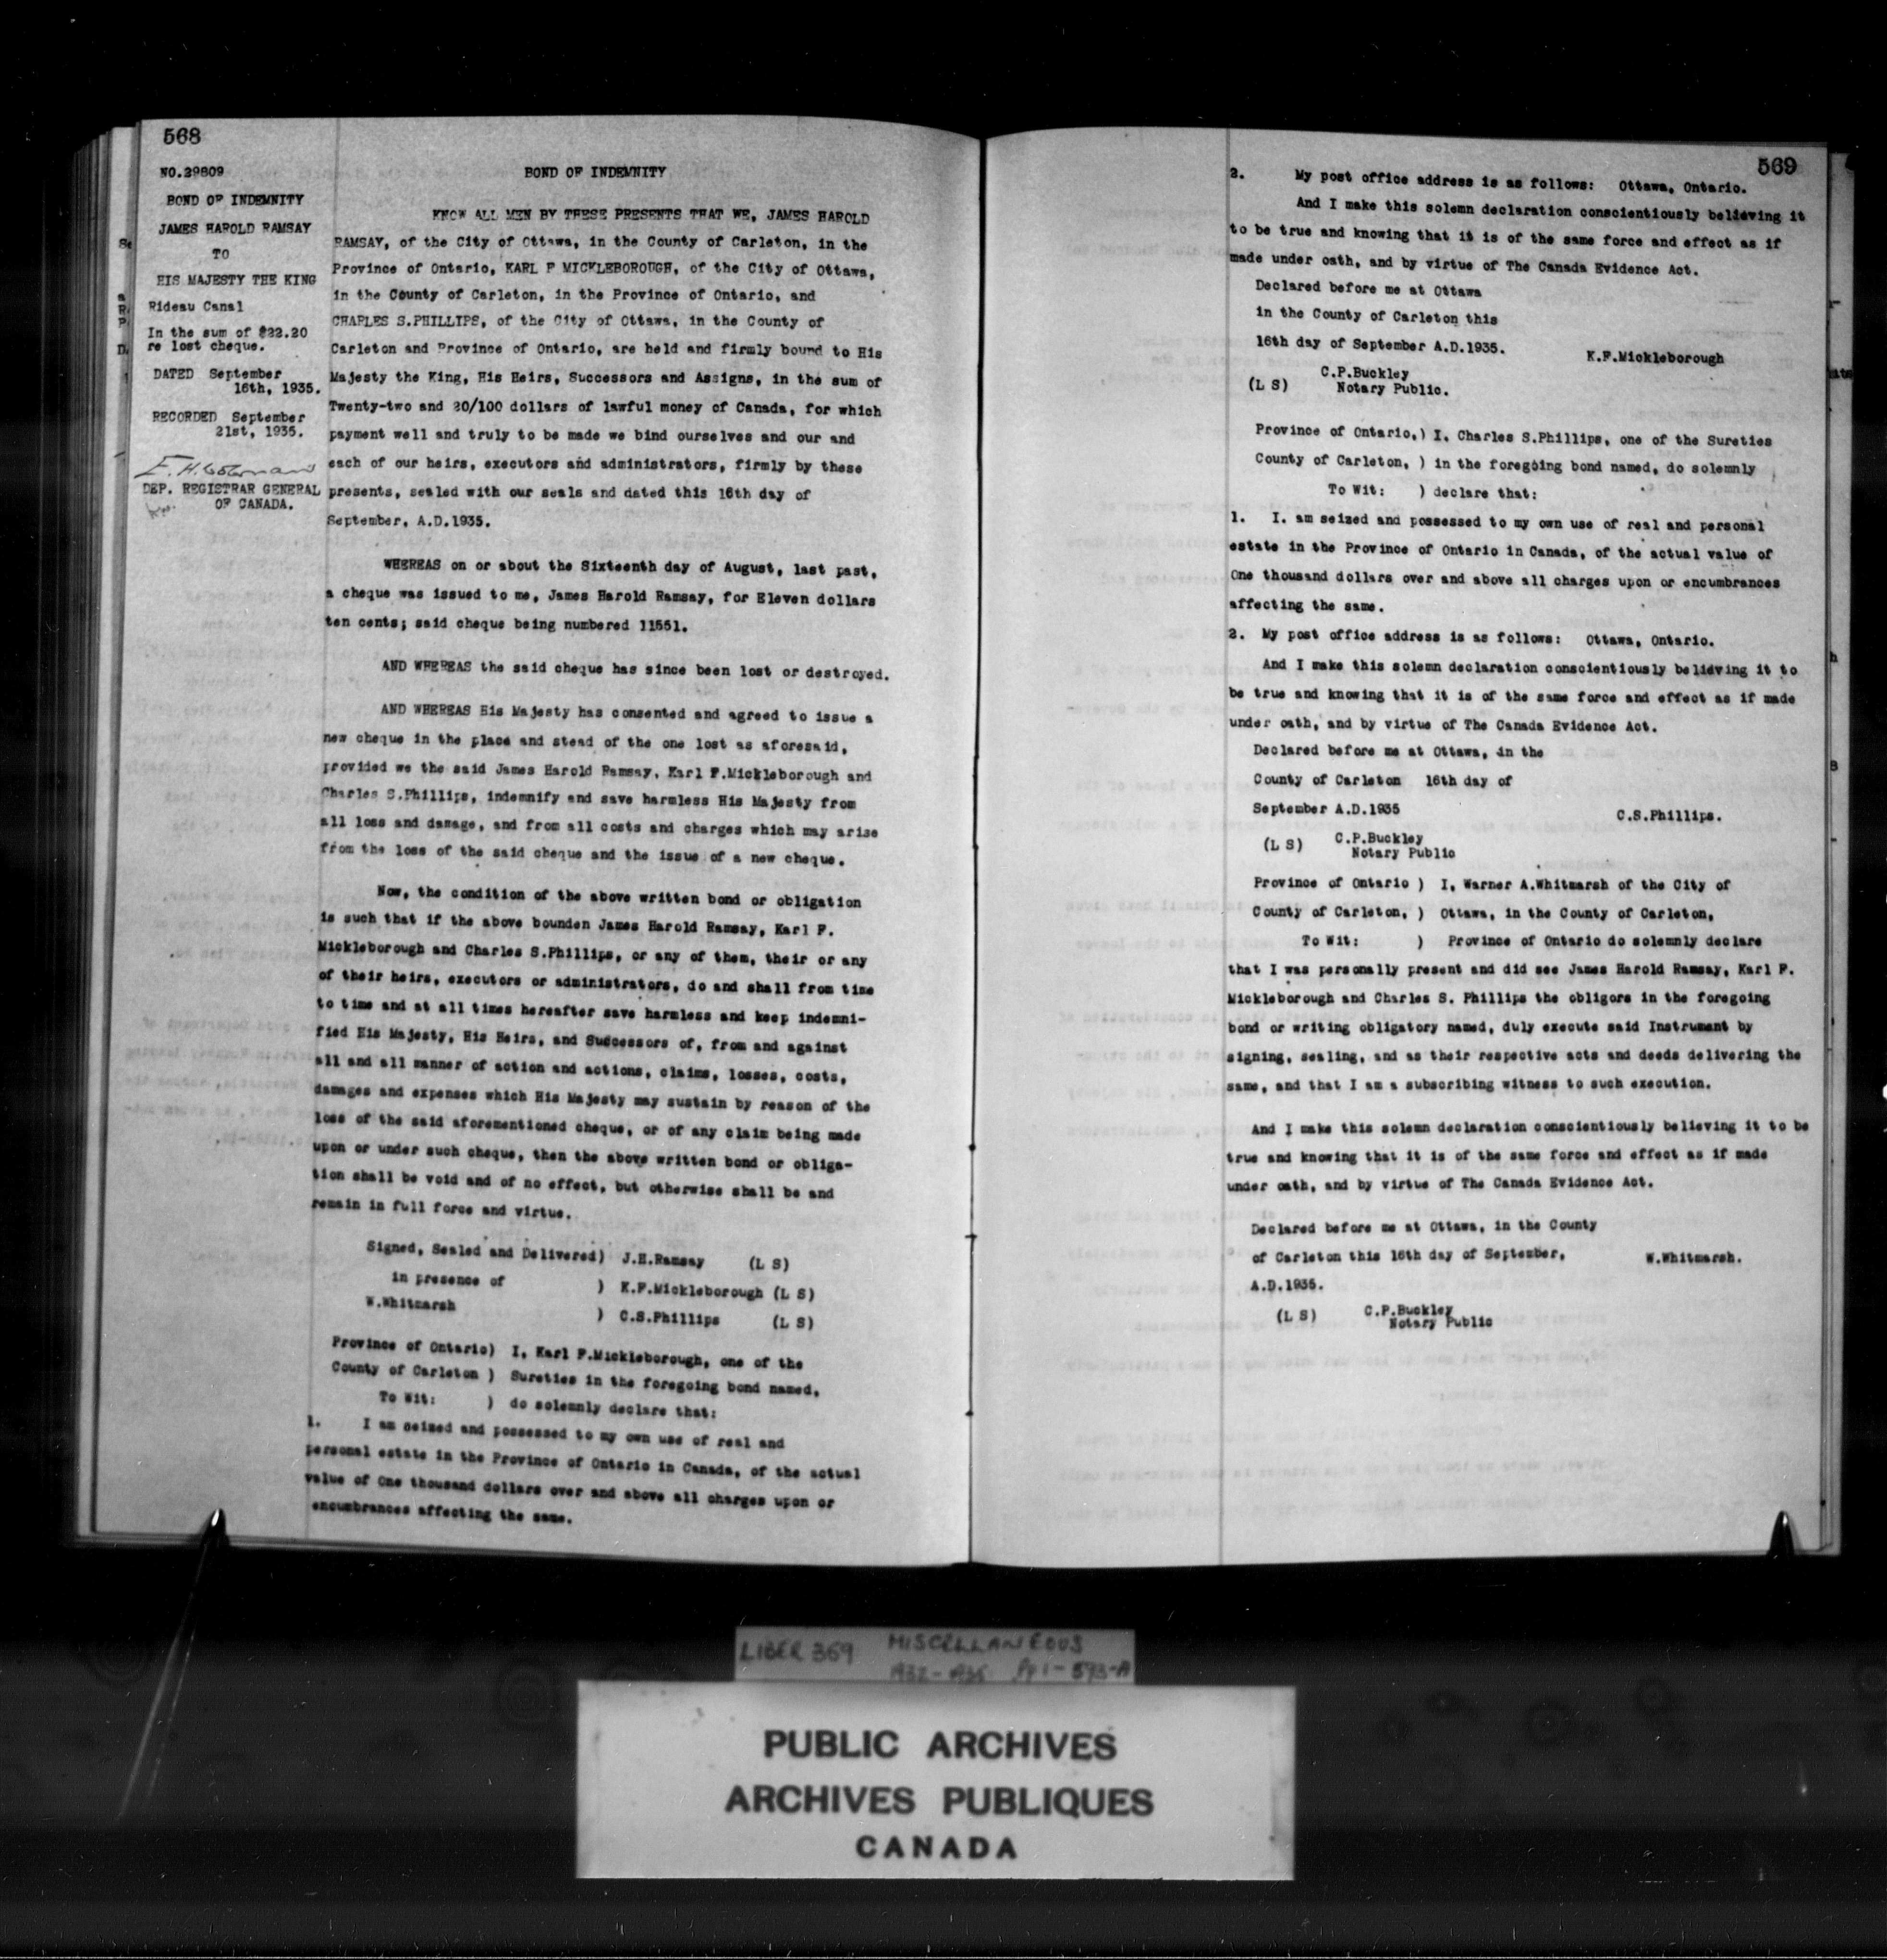 568
NO.29809
BOND OF INDEMNITY
JAMES HAROLD RAMSAY
TO
HIS MAJESTY THE KING
Rideau Canal
In the sum of $22.20
re lost cheque.
DATED September
16th, 1935.
RECORDED September
21st, 1935.
DEP. REGISTRAR GENERAL
OF CANADA.
BOND OF INDEMNITY
KNOW ALL MEN BY THESE PRESENTS THAT WE, JAMES HAROLD
RAMSAY, of the City of Ottawa, in the County of Carleton, in the
Province of Ontario, KARL F MICKLEBOROUGH, of the City of Ottawa,
in the County of Carleton, in the Province of Ontario, and
CHARLES S.PHILLIPS, of the City of Ottawa, in the County of
Carleton and Province of Ontario, are held and firmly bound to His
Majesty the King, His Heirs, Successors and Assigns, in the sum of
Twenty-two and 20/100 dollars of lawful money of Canada, for which
payment well and truly to be made we bind ourselves and our and
each of our heirs, executors and administrators, firmly by these
presents, sealed with our seals and dated this 16th day of
September, A.D.1935.
WHEREAS on or about the Sixteenth day of August, last past,
a cheque was issued to me, James Harold Ramsay, for Eleven dollars
ten cents; said cheque being numbered 11551.
AND WHEREAS the said cheque has since been lost or destroyed.
AND WHEREAS His Majesty has consented and agreed to issue a
new cheque in the place and stead of the one lost as aforesaid,
provided we the said James Harold Ramsay, Karl F.Mickleborough and
Charles S.Phillips, indemnify and save harmless His Majesty from
all loss and damage, and from all costs and charges which may arise
from the loss of the said cheque and the issue of a new cheque.
Now, the condition of the above written bond or obligation
is such that if the above bounden James Harold Ramsay, Karl F.
Mickleborough and Charles S.Phillips, or any of them, their or any
of their heirs, executors or administrators, do and shall from time
to time and at all times hereafter save harmless and keep indemni-
fied His Majesty, His Heirs, and Successors of, from and against
all and all manner of action and actions, claims, losses, costs,
damages and expenses which His Majesty may sustain by reason of the
loss of the said aforementioned cheque, or of any claim being made
upon or under such cheque, then the above written bond or obliga-
tion shall be void and of no effect, but otherwise shall be and
remain in full force and virtue.
Signed, Sealed and Delivered) J.H.Ramsay (L S)
in presence of ) K.F.Mickleborough (L S)
W.Whitmarsh ) C.S.Phillips (L S)
Province of Ontario) I, Karl F.Mickleborough, one of the
County of Carleton ) Sureties in the foregoing bond named,
To Wit: ) do solemnly declare that:
1. I am seized and possessed to my own use of real and
personal estate in the Province of Ontario in Canada, of the actual
value of One thousand dollars over and above all charges upon or
encumbrances affecting the same.
569
2. My post office address is as follows: Ottawa, Ontario.
And I make this solemn declaration conscientiously believing it
to be true and knowing that it is of the same force and effect as if
made under oath, and by virtue of The Canada Evidence Act.
Declared before me at Ottawa
in the County of Carleton this
16th day of September A.D.1935. K.F.Mickleborough
C.P.Buckley
(L S) Notary Public.
Province of Ontario,) I, Charles S.Phillips, one of the Sureties
County of Carleton, ) in the foregoing bond named, do solemnly
To Wit: ) declare that:
1. I. am seized and possessed to my own use of real and personal
estate in the Province of Ontario in Canada, of the actual value of
One thousand dollars over and above all charges upon or encumbrances
affecting the same.
2. My post office address is as follows: Ottawa, Ontario.
And I make this solemn declaration conscientiously believing it to
be true and knowing that it is of the same force and effect as if made
under oath, and by virtue of The Canada Evidence Act.
Declared before me at Ottawa, in the
County of Carleton 16th day of
September A.D.1935 C.S.Phillips.
(L S) C.P.Buckley
Notary Public
Province of Ontario ) I, Warner A.Whitmarsh of the City of
County of Carleton, ) Ottawa, in the County of Carleton,
To Wit: ) Province of Ontario do solemnly declare
that I was personally present and did see James Harold Ramsay, Karl F.
Mickleborough and Charles S. Phillips the obligors in the foregoing
bond or writing obligatory named, duly execute said Instrument by
signing, sealing, and as their respective acts and deeds delivering the
same, and that I am a subscribing witness to such execution.
And I make this solemn declaration conscientiously believing it to be
true and knowing that it is of the same force and effect as if made
under oath, and by virtue of The Canada Evidence Act.
Declared before me at Ottawa, in the County
of Carleton this 16th day of September, W.Whitmarsh.
A.D.1935.
(L S) C.P.Buckley
Notary Public
LIBER 369 MISCELLANEOUS
1932-1935 Pp 1-593-A
PUBLIC ARCHIVES
ARCHIVES PUBLIQUES
CANADA